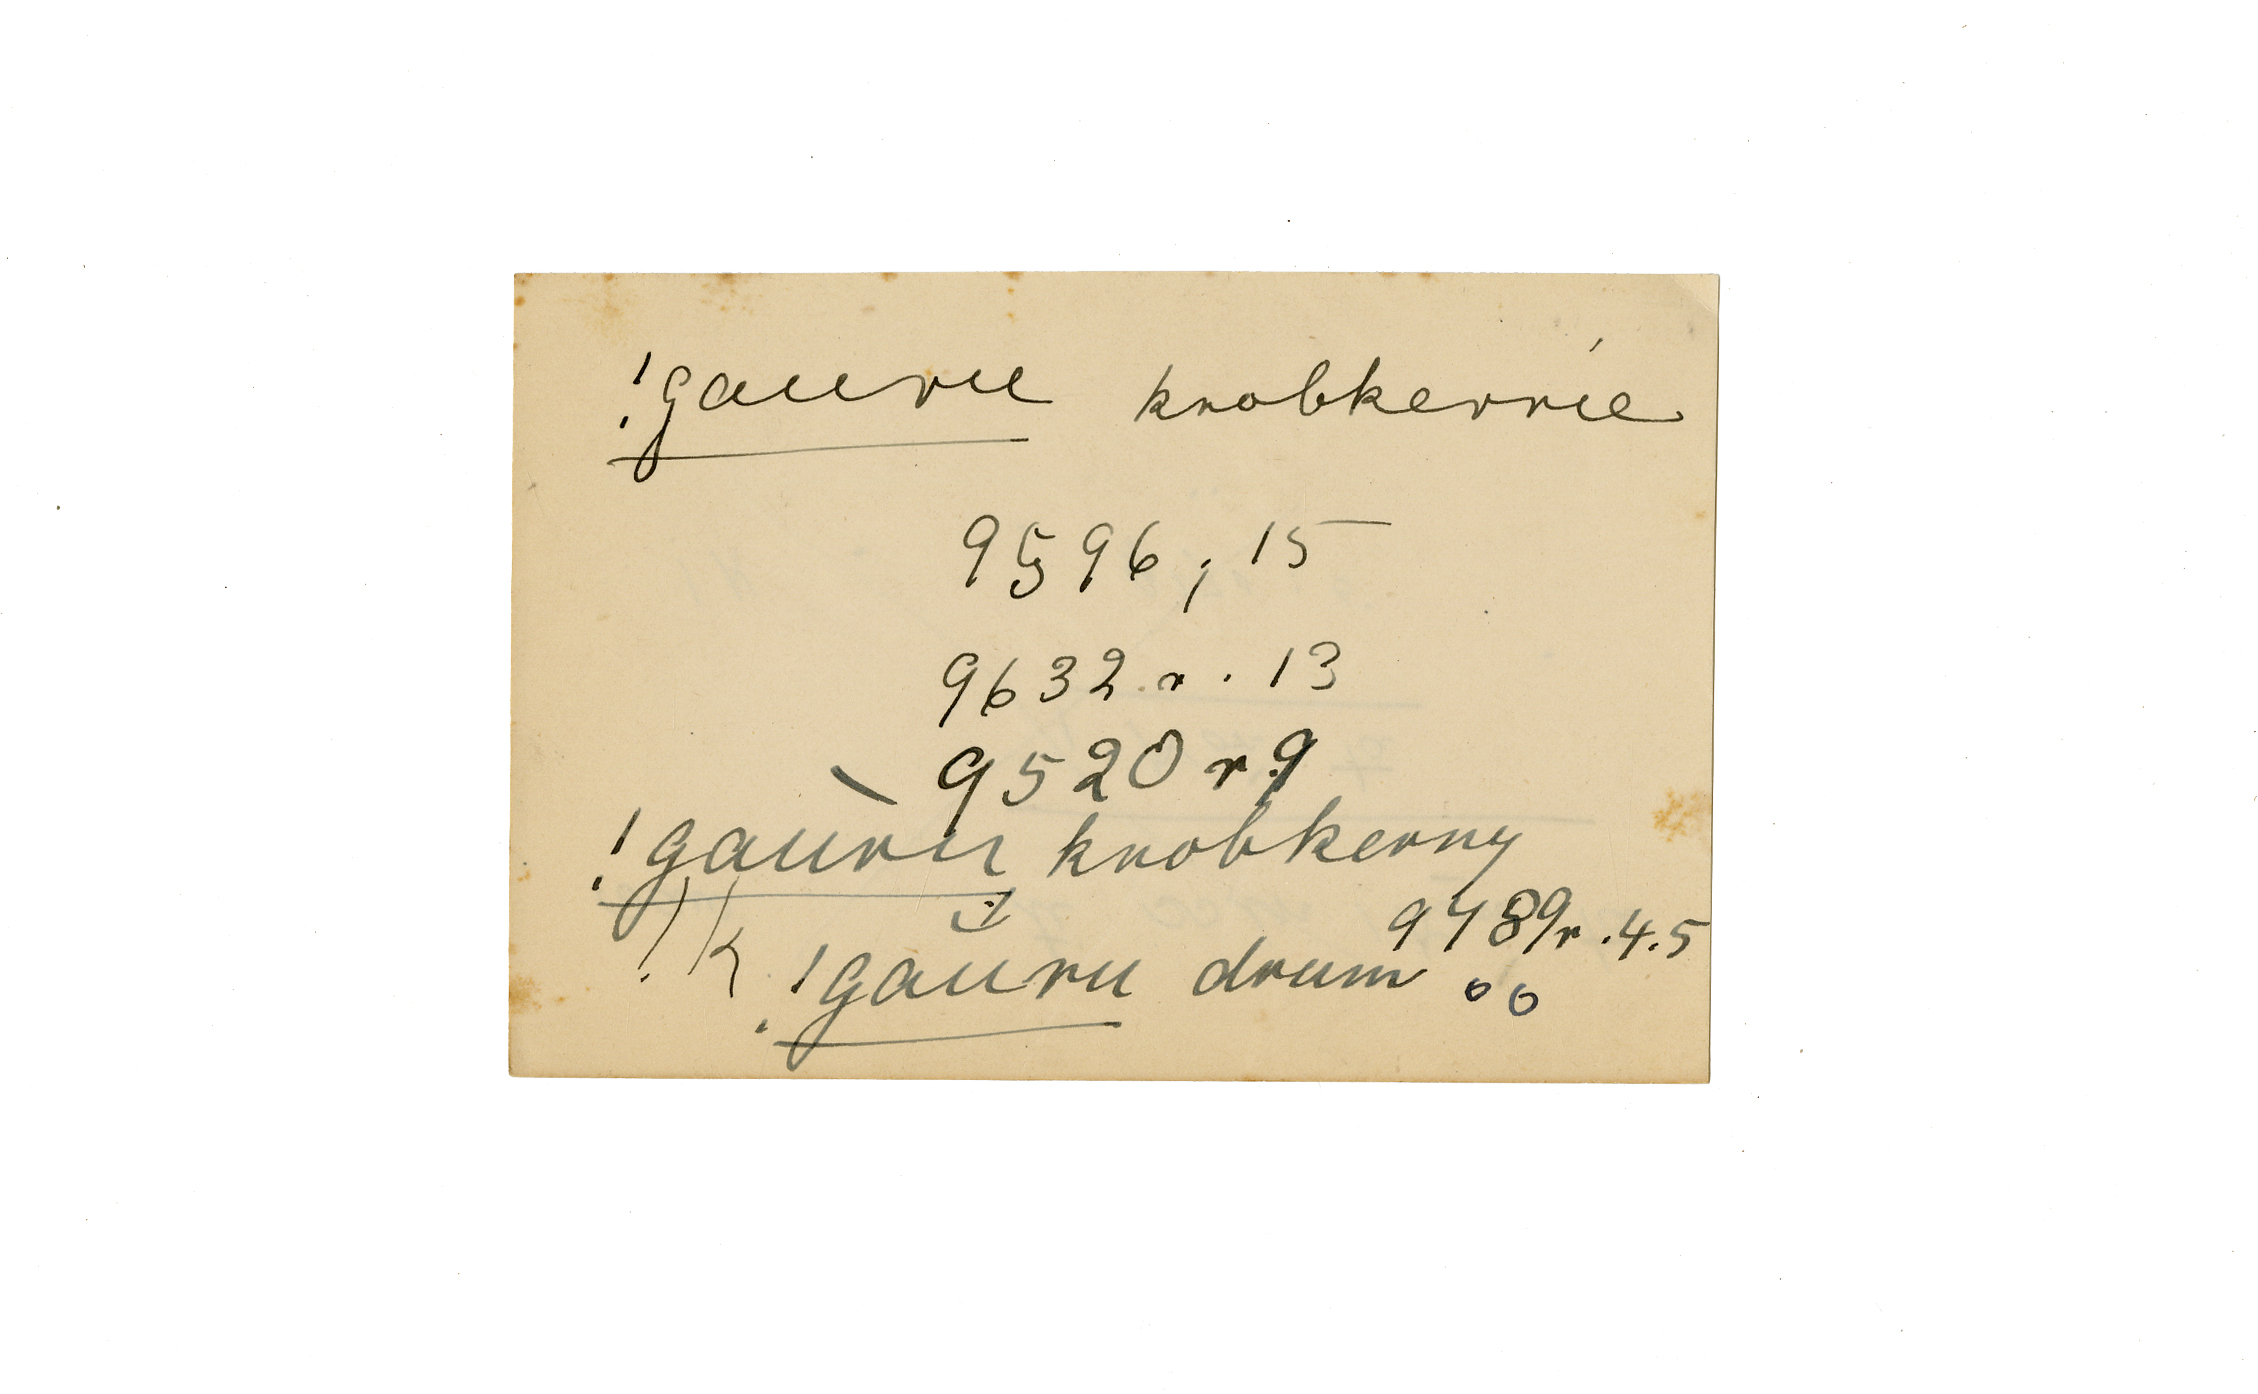 !gauru knobkerrie
9596, 15
9632 r. 13
9520 r 9
!gauru knobkerry
9489 r. 4.5
!k !gauru drum